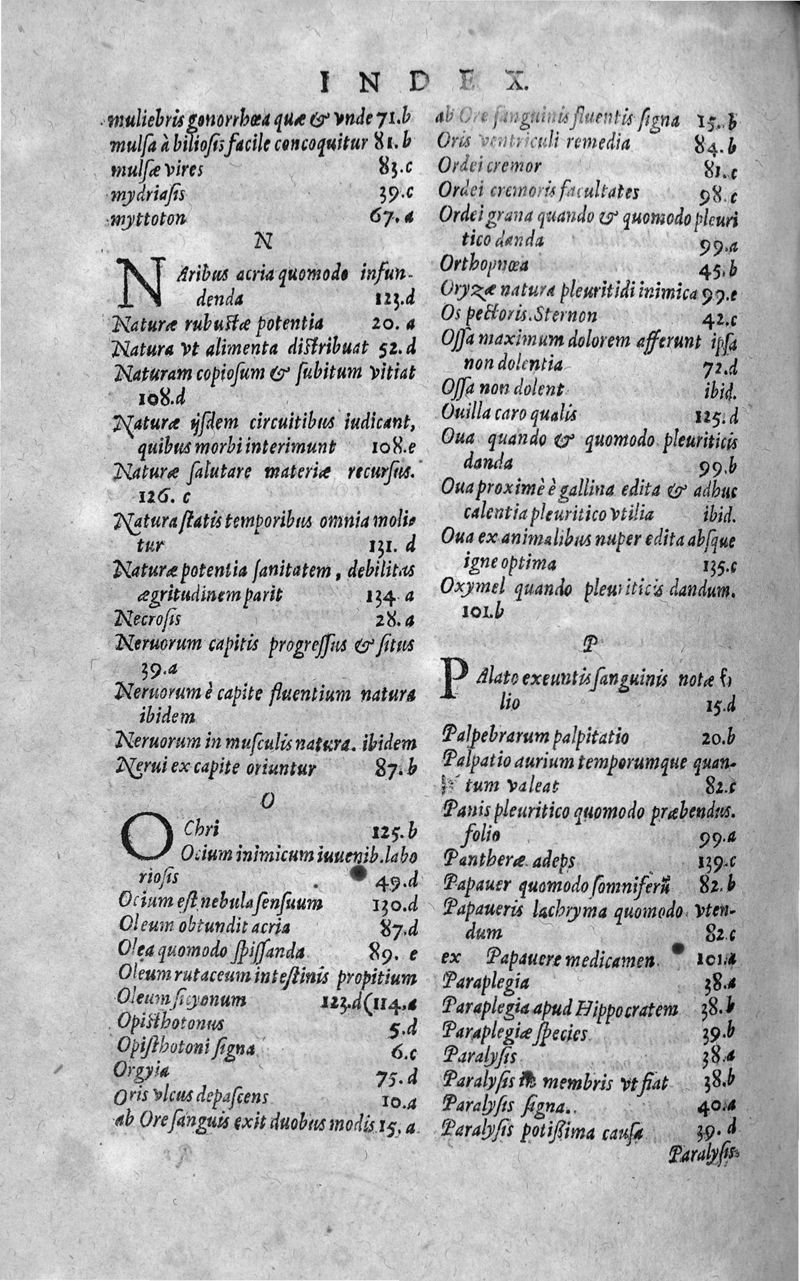 INDEX.
muliebris gonorrhœa quæ & vnde 71.b
mulsa à biliosis facile concoquitur 81.b
mulsæ vires 83.c
mydriasis 39.c
myttoton 67.a
N
NAribus acria quomodo infun-
denda 123.d
Naturæ robustæ potentia 20.a
Natura vt alimenta distribuat 52.d
Naturam copiosum & subitum vitiat
108.d
Naturæ ijsdem circuitibus iudicant,
quibus morbi interimunt 108.e
Naturæ salutare materiæ recursus.
126. c
Natura statis temporibus omnia molie
tur 131. d
Naturæ potentia sanitatem, debilitas
ægritudinem parit 134 a
Necrosis 28.a
Neruorum capitis progressus & situs
39.a
Neruorum è capite fluentium natura
ibidem
Neruorum in musculis natura. ibidem
Nerui ex capite oriuntur 87.b
O
OChri 125.b
Ocium inimicum iuuenib. labo
riosis 49.d
Ocium est nebula sensuum 130.d
Oleum obtundit acria 87.d
Olea quomodo spissanda 89. e
Oleum rutaceum intestinis propitium
Oleum sicyonum 123.d(114.a
Opisthotonus 5.d
Opisthotoni signa 6.c
Orgyia 75.d
Oris vlcus depascens 10.a
ab Ore sanguis exit duobus modis 15. a
ab Ore sanguinis fluentis signa 15. b
Oris ventriculi remedia 84.b
Ordei cremor 81.c
Ordei cremoris facultates 98.c
Ordei grana quando & quomodo pleuri
tico danda 99.a
Orthopnœa 45.b
Oryzæ natura pleuritidi inimica 99.e
Os pectoris. Sternon 42.c
Ossa maximum dolorem afferunt ipsa
non dolentia 72.d
Ossa non dolent ibid.
Ouilla caro qualis 125.d
Oua quando & quomodo pleuriticis
danda 99.b
Oua proximè è gallina edita & adhuc
calentia pleuritico vtilia ibid.
Oua ex animalibus nuper edita absque
igne optima 135.c
Oxymel quando pleuriticis dandum.
101.b
P
PAlato exeuntis sanguinis notæ
lio 15.d
Palpebrarum palpitatio 20.b
Palpatio aurium temporumque quan-
tum valeat 82.c
Panis pleuritico quomodo præbendus.
folio 99.a
Pantheræ adeps 139.c
Papauer quomodo somniferũ 82.b
Papaueris lachryma quomodo vten-
dum 82.c
ex Papauere medicamen 101.a
Paraplegia 38.a
Paraplegia apud Hippocratem 38.b
Paraplegiæ species 39.b
Paralysis 38.a
Paralysis in membris vt fiat 38.b
Paralysis signa. 40.a
Paralysis potißima causa 39. d
Paralysis